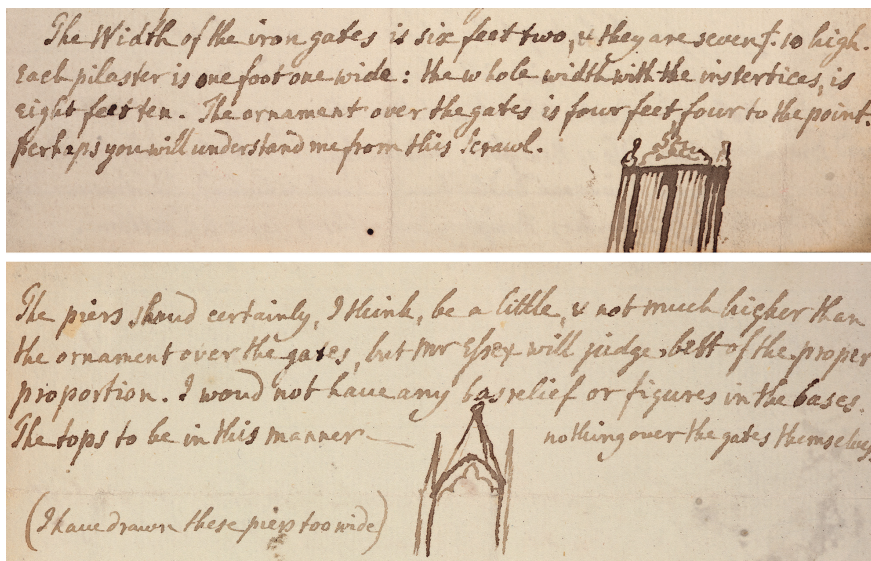 The Width of the iron gates is six feet two, & they are seven f. 10 high.
Each pilaster is one foot one wide: the whole width with the interstices, is
eight feet ten. The ornament over the gates is four feet four to the point.
perhaps you will understand me from this scrawl.
The piers shoud certainly, I think, be a little, & not much higher than
the ornament over the gates, but Mr Essex will judge best of the proper
proportion. I woud not have any basrelief or figures in the bases.
The tops to be in this manner — nothing over the gates themselves
(I have drawn these piers too wide)